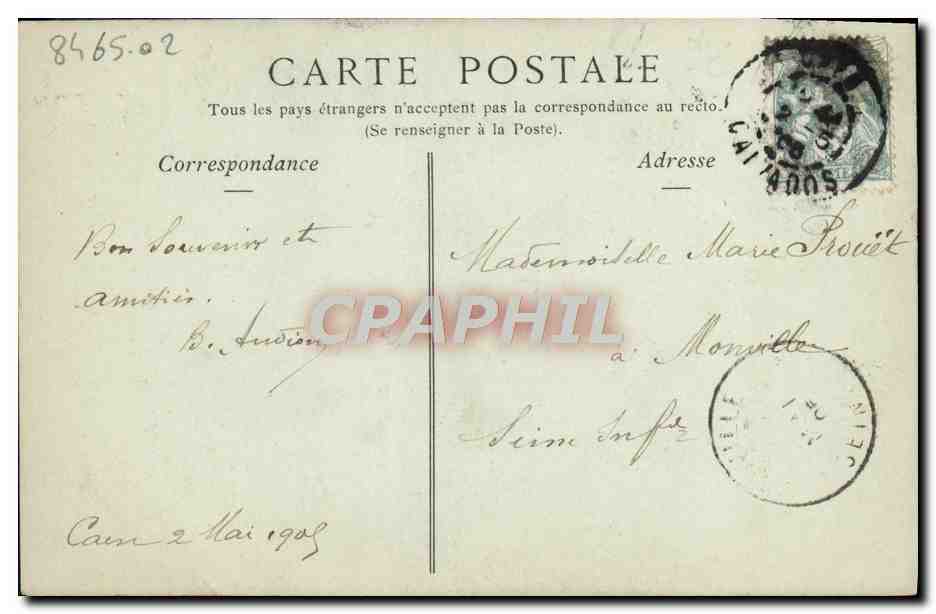 8465.02
CARTE POSTALE
Tous les pays étrangers n'acceptent pas la correspondance au recto.
(Se renseigner à la Poste).
Correspondance
Adresse
CALVADOS
Bon Souvenir et
amitiés.
B.
Mademoiselle Marie Prouët
à Monville
Seine Infre
Caen 2 Mai 1905
CPAPHIL